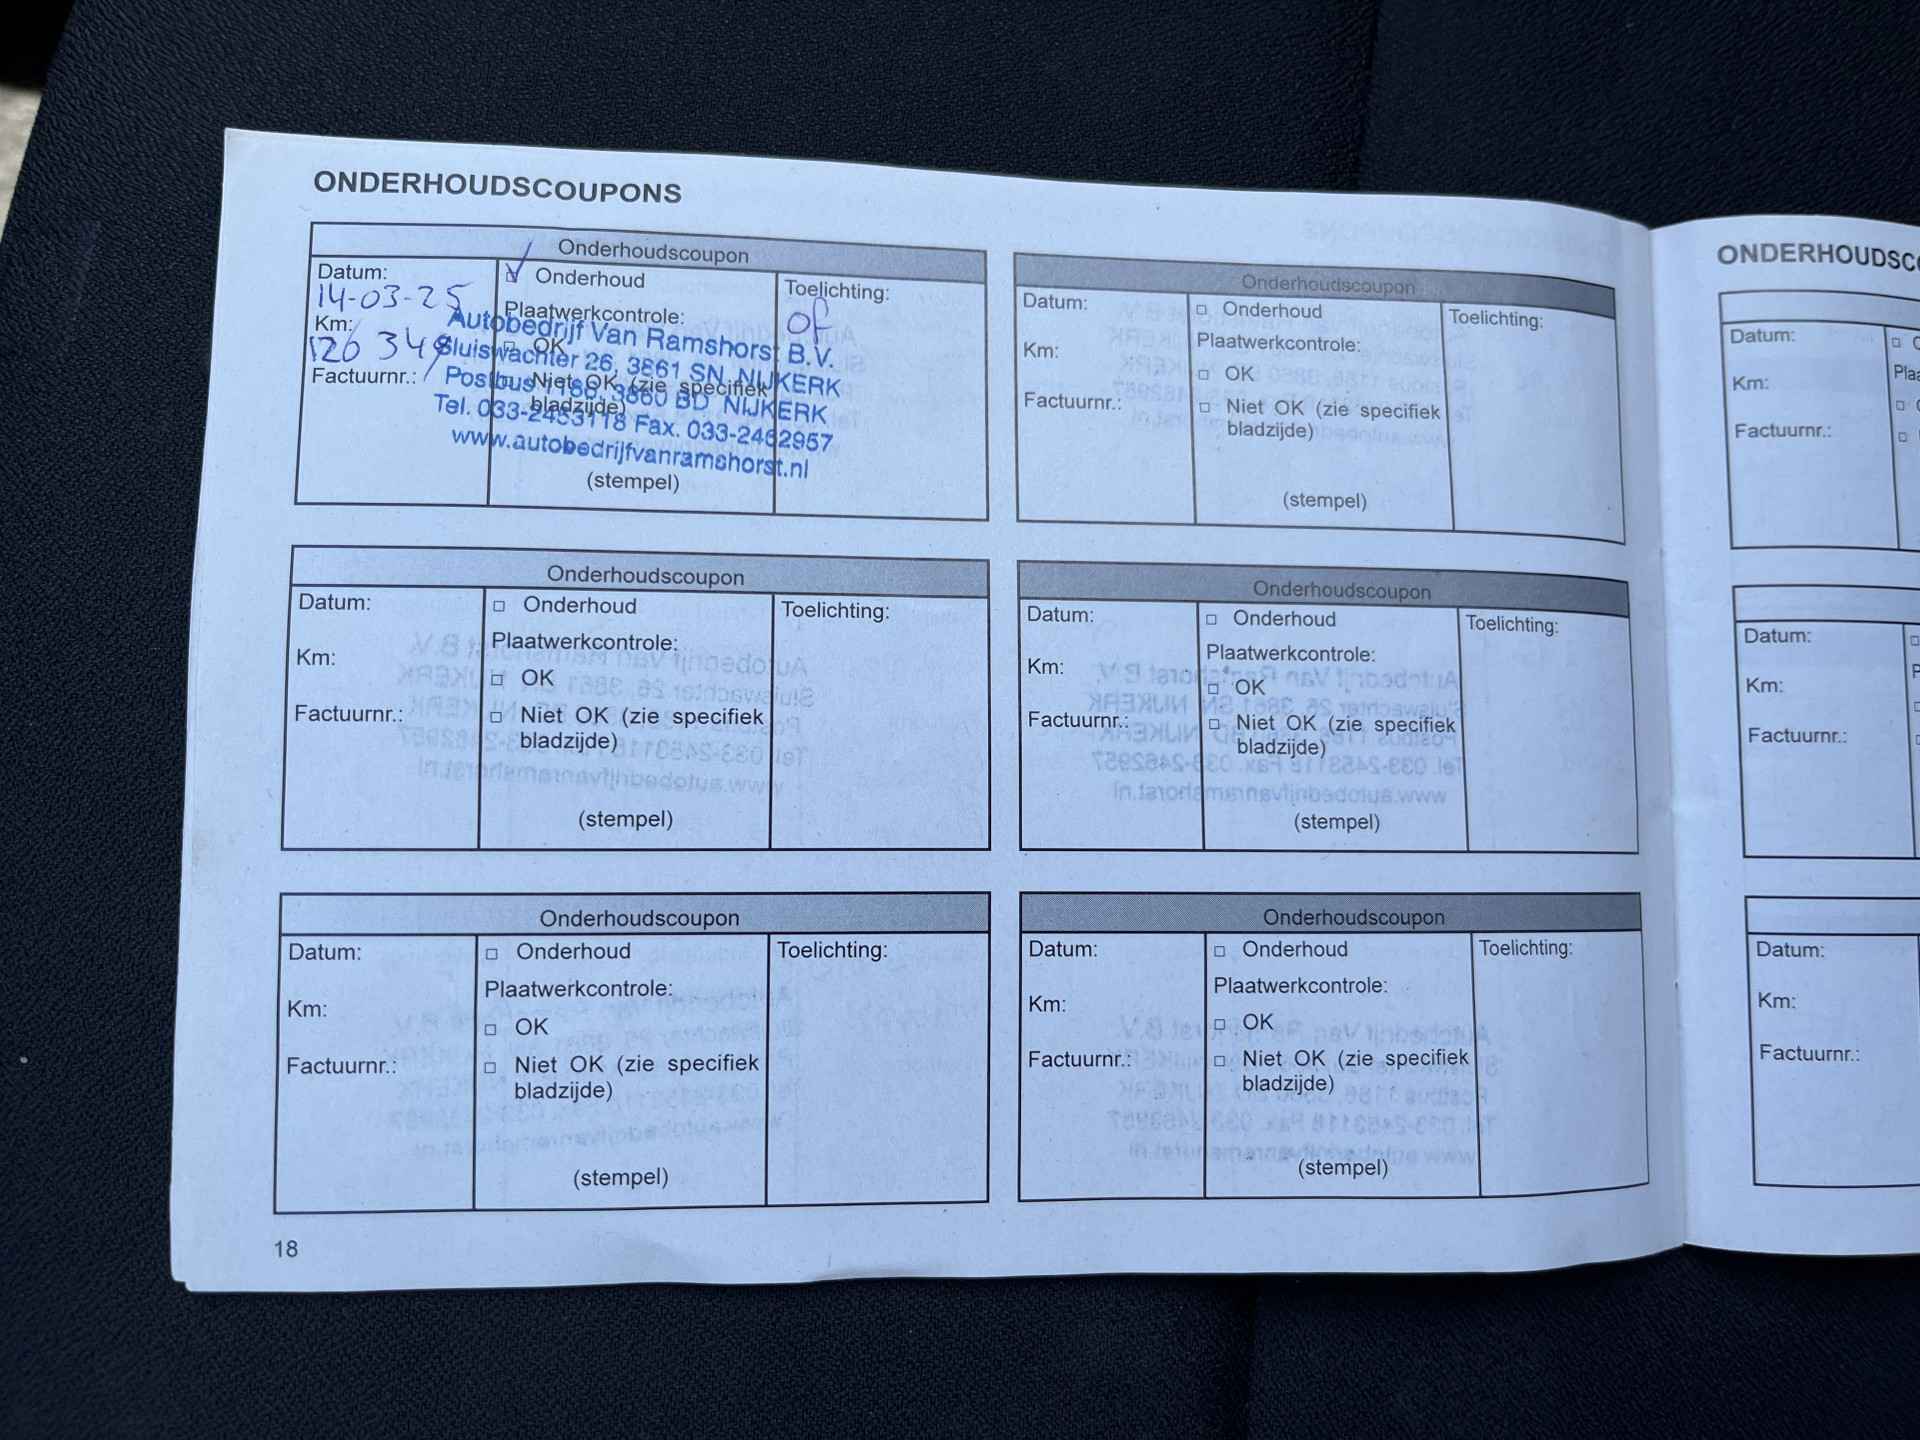 ONDERHOUDSCOUPONS
Onderhoudscoupon
Datum:
14-03-25
Km:
Factuurnr.:
Onderhoud
Plaatwerkcontrole:
OK
Niet OK (zie specifiek
bladzijde)
(stempel)
Toelichting:
Autobedrijf Van Ramshorst B.V.
Sluiswachter 26, 3861 SN NIJKERK
Postbus 1186, 3860 BD NIJKERK
Tel. 033-2453118 Fax. 033-2462957
www.autobedrijfvanramshorst.nl
Onderhoudscoupon
Datum:
Km:
Factuurnr.:
Onderhoud
Plaatwerkcontrole:
OK
Niet OK (zie specifiek
bladzijde)
(stempel)
Toelichting:
Onderhoudscoupon
Datum:
Km:
Factuurnr.:
Onderhoud
Plaatwerkcontrole:
OK
Niet OK (zie specifiek
bladzijde)
(stempel)
Toelichting:
Onderhoudscoupon
Datum:
Km:
Factuurnr.:
Onderhoud
Plaatwerkcontrole:
OK
Niet OK (zie specifiek
bladzijde)
(stempel)
Toelichting:
Onderhoudscoupon
Datum:
Km:
Factuurnr.:
Onderhoud
Plaatwerkcontrole:
OK
Niet OK (zie specifiek
bladzijde)
(stempel)
Toelichting:
Onderhoudscoupon
Datum:
Km:
Factuurnr.:
Onderhoud
Plaatwerkcontrole:
OK
Niet OK (zie specifiek
bladzijde)
(stempel)
Toelichting:
18
ONDERHOUDSCO
Datum:
Km:
Factuurnr.:
Datum:
Km:
Factuurnr.:
Datum:
Km:
Factuurnr.: